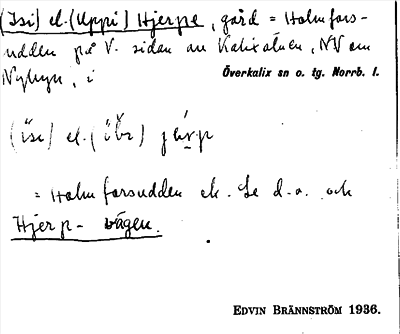 (Isi) el. (Uppi) Hjerpe, gård = Holmfors-
udden på V. sidan av Kalixälven, NV om
Nybyn, i Överkalix sn o. tg. Norrb. l.
(isi) el. ( ) järp
= Holmforsudden ek. Se d.o. och
Hjerp-vägen.
EDVIN BRÄNNSTRÖM 1936.